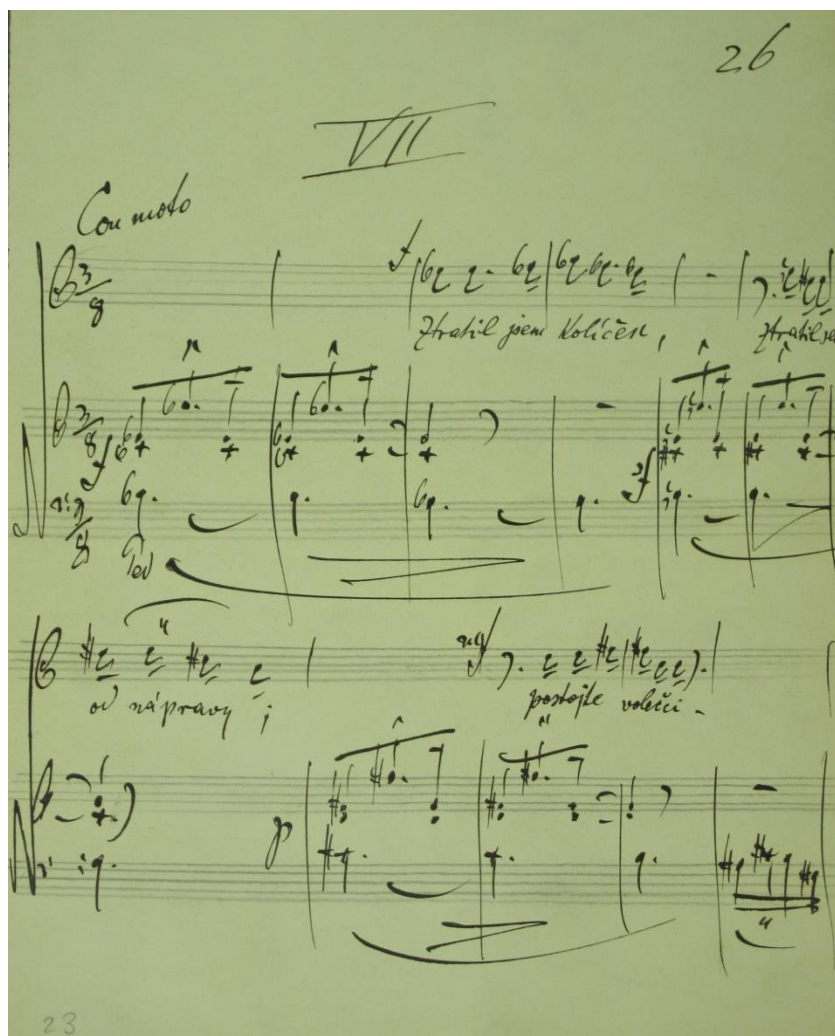 26
VII
Con moto
3/8
f
Ztratil jsem Kolíček, Ztratil se
3/8
f
3/8
Ped
od nápravy ;
postojte volečci -
p
23